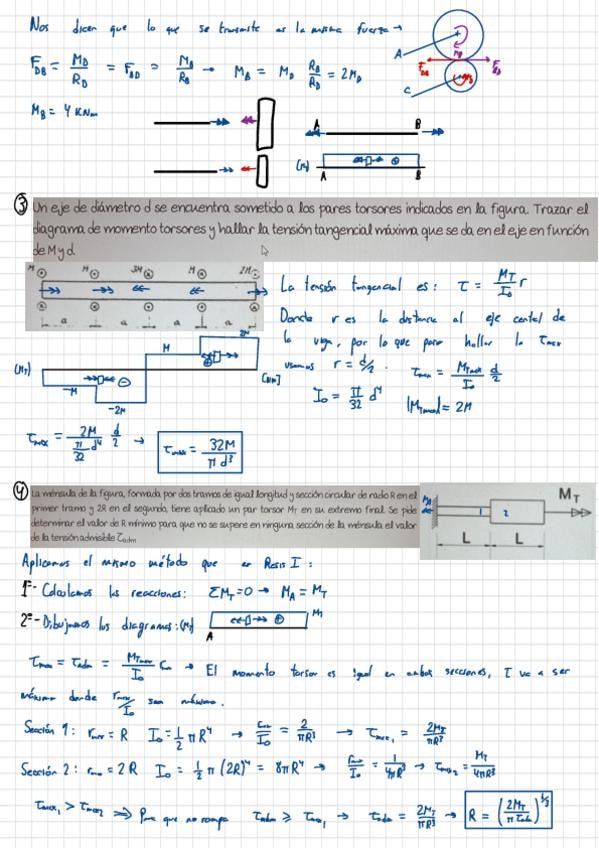 Nos dicen que lo que se transmite es la misma fuerza →
F_DB = M_D/R_D = F_BD = M_B/R_B → M_B = M_D R_B/R_D = 2M_D
M_B = 4 KNm
A
C
A B
A B
③ Un eje de diámetro d se encuentra sometido a los pares torsores indicados en la figura. Trazar el
diagrama de momento torsores y hallar la tensión tangencial máxima que se da en el eje en función
de M y d.
M M 3M M 2M
a a a a
La tensión tangencial es: τ = M_T/I₀ r
Donde r es la distancia al eje central de
la viga, por lo que para hallar la τmax
usamos r = d/2. τmax = M_Tmax/I₀ d/2
I₀ = π/32 d⁴ |M_Tmax| = 2M
(M_T)
-M
-2M
M
2M
τmax = 2M/(π/32 d⁴) d/2 → τmax = 32M/(π d³)
④ La ménsula de la figura, formada por dos tramos de igual longitud y sección circular de radio R en el
primer tramo y 2R en el segundo, tiene aplicado un par torsor M_T en su extremo final. Se pide
determinar el valor de R mínimo para que no se supere en ninguna sección de la ménsula el valor
de la tensión admisible τadm
1 2 M_T
L L
Aplicamos el mismo método que en Resis I:
1º- Calculamos las reacciones: ΣM_T=0 → M_A = M_T
2º- Dibujamos los diagramas: (M_T) M_T
A
τmax = τadm = M_Tmax/I₀ rmax → El momento torsor es igual en ambas secciones, τ va a ser
máximo donde rmax/I₀ sea máximo.
Sección 1: rmax = R I₀ = 1/2 πR⁴ → rmax/I₀ = 2/(πR³) → τmax₁ = 2M_T/(πR³)
Sección 2: rmax = 2R I₀ = 1/2 π(2R)⁴ = 8πR⁴ → rmax/I₀ = 1/(4πR³) → τmax₂ = M_T/(4πR³)
τmax₁ > τmax₂ ⟹ Para que no rompa τadm ≥ τmax₁ → τadm = 2M_T/(πR³) → R = (2M_T/(π τadm))^(1/3)